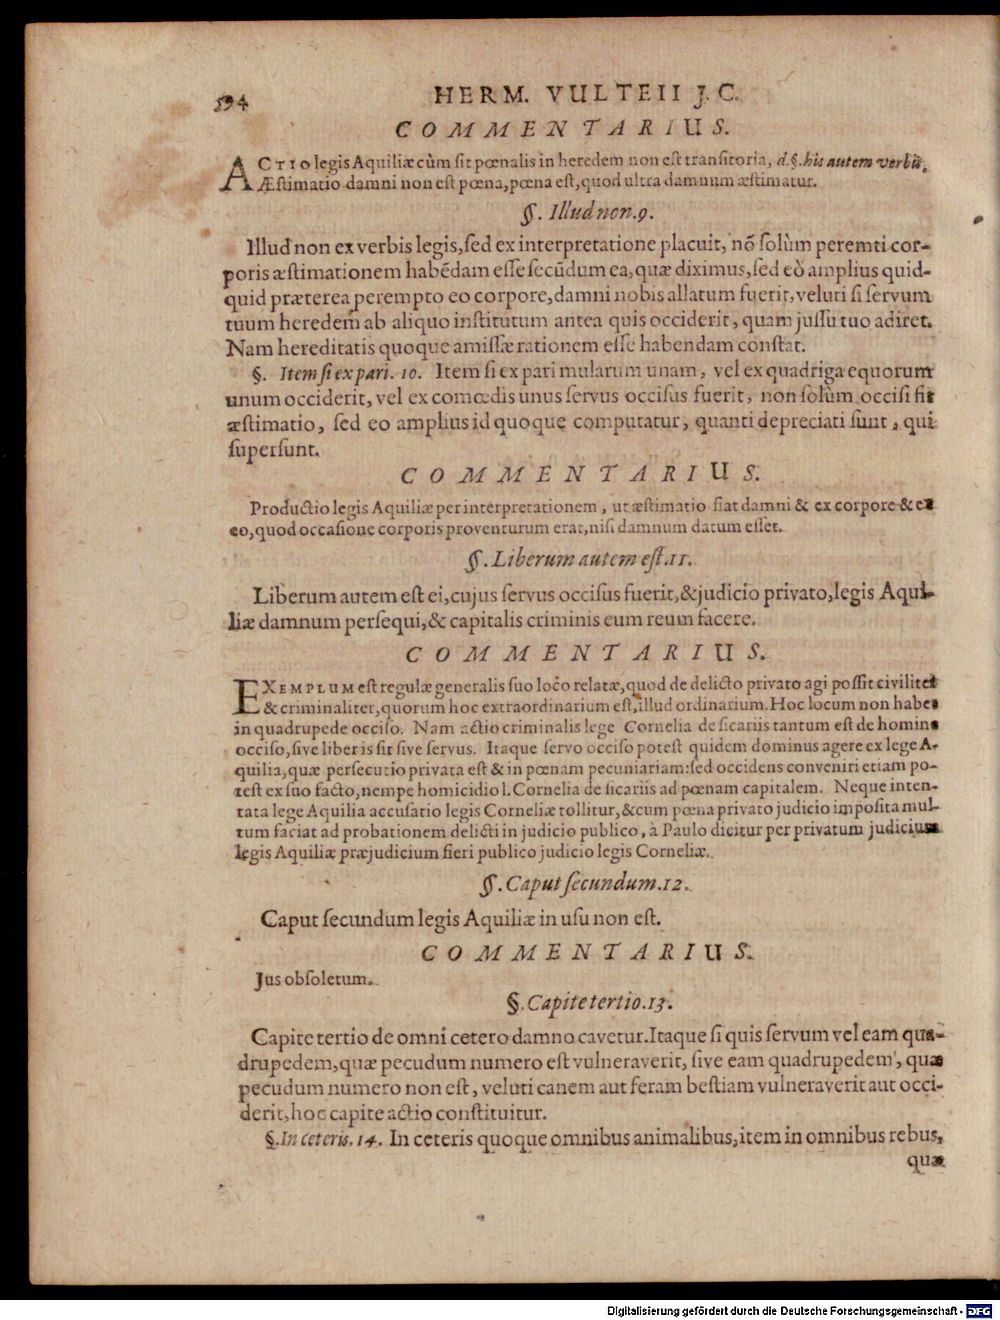 594 HERM. VULTEII J. C.
COMMENTARIUS.
ACTIO legis Aquiliæ cùm sit pœnalis in heredem non est transitoria, d. §. his autem verbis.
Æstimatio damni non est pœna, pœna est, quod ultra damnum æstimatur.
§. Illud non. 9.
Illud non ex verbis legis, sed ex interpretatione placuit, nõ solùm peremti cor-
poris æstimationem habẽdam esse secũdum ea, quæ diximus, sed eò amplius quid-
quid præterea perempto eo corpore, damni nobis allatum fuerit, veluti si servum
tuum heredem ab aliquo institutum antea quis occiderit, quam jussu tuo adiret.
Nam hereditatis quoque amissæ rationem esse habendam constat.
§. Item si ex pari. 10. Item si ex pari mularum unam, vel ex quadriga equorum
unum occiderit, vel ex comœdis unus servus occisus fuerit, non solùm occisi fit
æstimatio, sed eo amplius id quoque computatur, quanti depreciati sunt, qui
supersunt.
COMMENTARIUS.
Productio legis Aquiliæ per interpretationem, ut æstimatio fiat damni & ex corpore & ex
eo, quod occasione corporis proventurum erat, nisi damnum datum esset.
§. Liberum autem est. 11.
Liberum autem est ei, cujus servus occisus fuerit, & judicio privato, legis Aqui-
liæ damnum persequi, & capitalis criminis eum reum facere.
COMMENTARIUS.
EXEMPLUM est regulæ generalis suo loco relatæ, quod de delicto privato agi possit civiliter
& criminaliter, quorum hoc extraordinarium est, illud ordinarium. Hoc locum non habet
in quadrupede occiso. Nam actio criminalis lege Cornelia de sicariis tantum est de homine
occiso, sive liber is sit sive servus. Itaque servo occiso potest quidem dominus agere ex lege A-
quilia, quæ persecutio privata est & in pœnam pecuniariam: sed occidens conveniri etiam po-
test ex suo facto, nempe homicidio l. Cornelia de sicariis ad pœnam capitalem. Neque inten-
tata lege Aquilia accusatio legis Corneliæ tollitur, & cum pœna privato judicio imposita mul-
tum faciat ad probationem delicti in judicio publico, à Paulo dicitur per privatum judicium
legis Aquiliæ præjudicium fieri publico judicio legis Corneliæ.
§. Caput secundum. 12.
Caput secundum legis Aquiliæ in usu non est.
COMMENTARIUS.
Jus obsoletum.
§. Capite tertio. 13.
Capite tertio de omni cetero damno cavetur. Itaque si quis servum vel eam qua-
drupedem, quæ pecudum numero est vulneraverit, sive eam quadrupedem, quæ
pecudum numero non est, veluti canem aut feram bestiam vulneraverit aut occi-
derit, hoc capite actio constituitur.
§. In ceteris. 14. In ceteris quoque omnibus animalibus, item in omnibus rebus,
quæ
Digitalisierung gefördert durch die Deutsche Forschungsgemeinschaft - DFG